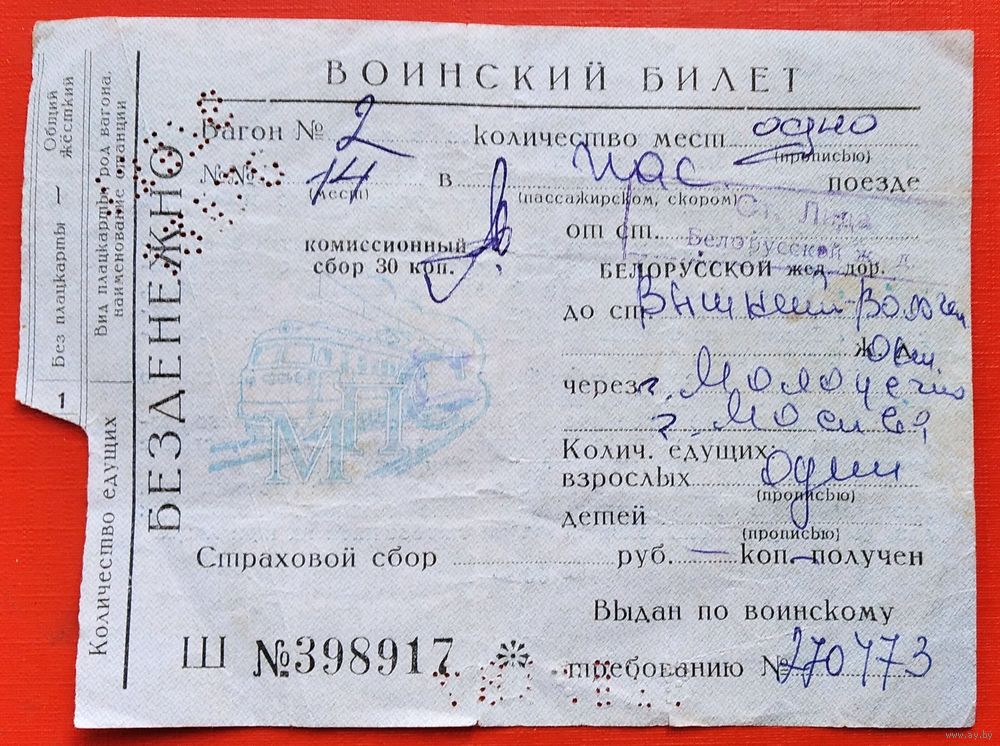 ВОИНСКИЙ БИЛЕТ
Вагон № 2 количество мест одно
(прописью)
№№ 14 в пас. поезде
(мест) (пассажирском, скором)
от ст. Ст. Лида
Белорусской ж. д.
комиссионный
сбор 30 коп.
БЕЛОРУССКОЙ жел. дор.
до ст. Вышний-Волочек
ж. д.
через г. Молодечно
г. Москва
МПС
Колич. едущих
взрослых один
(прописью)
детей
(прописью)
Страховой сбор руб. — коп. — получен
Выдан по воинскому
Ш №398917 требованию № 270473
БЕЗДЕНЕЖНО
Общий
жёсткий
Без плацкарты — 1
Вид плацкарты, род вагона,
наименование станции
Количество едущих
www.ay.by